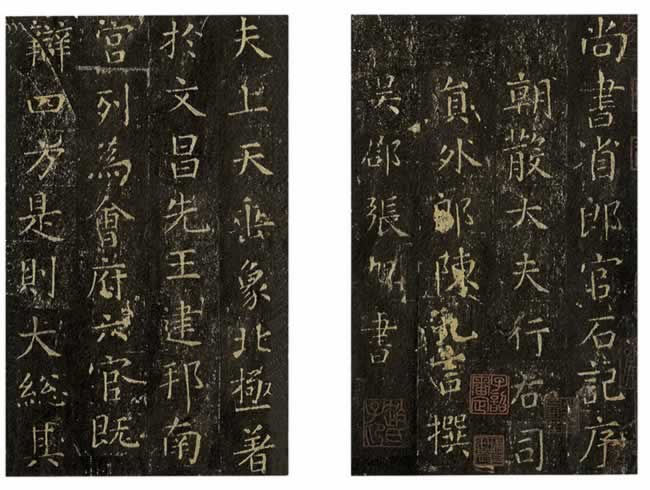 尚書省郎官石記序
朝散大夫行右司
員外郎陳九言撰
吴郡張旭書
夫上天垂象北極著
於文昌先王建邦南
宫列為會府六官既
辯四方是則大總其